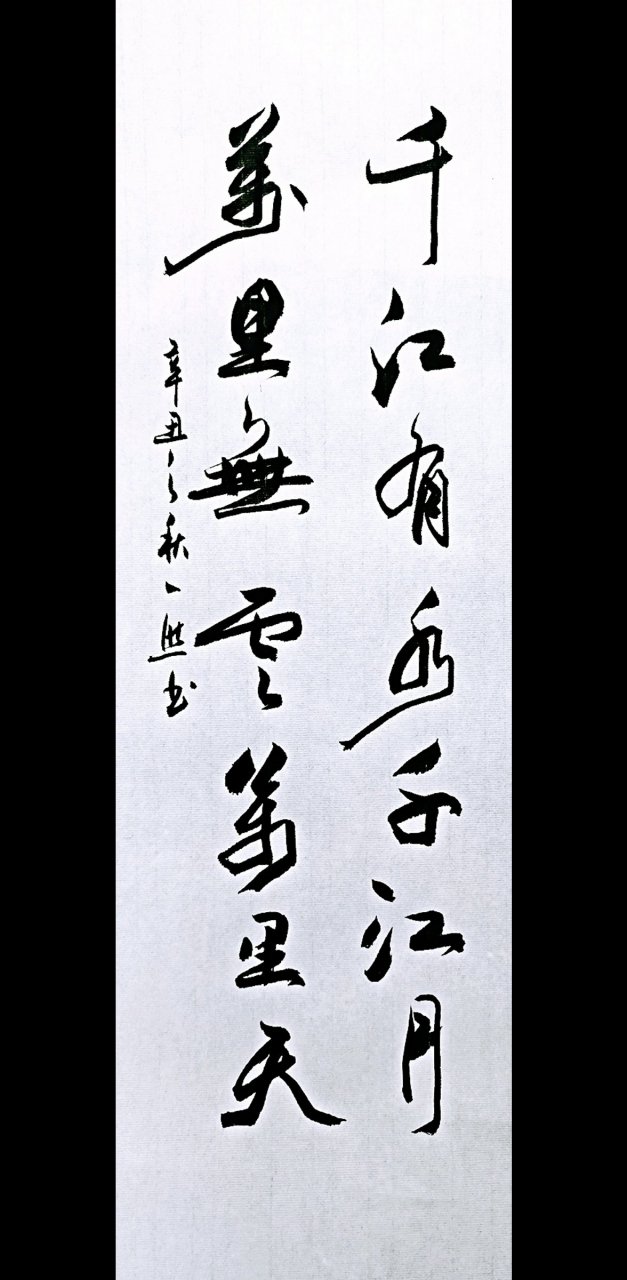 千江有水千江月
萬里無雲萬里天
辛丑之秋一熙书